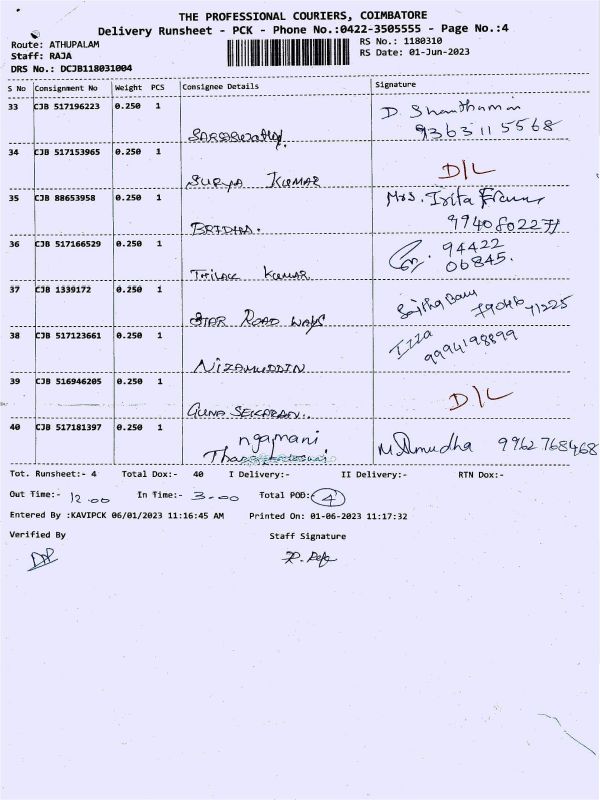 THE PROFESSIONAL COURIERS, COIMBATORE
Delivery Runsheet - PCK - Phone No.:0422-3505555 - Page No.:4
Route: ATHUPALAM RS No.: 1180310
Staff: RAJA RS Date: 01-Jun-2023
DRS No.: DCJB118031004
S No Consignment No Weight PCS Consignee Details Signature
33 CJB 517196223 0.250 1 D. Shanthamani
Saraswathy. 9363115568
34 CJB 517153965 0.250 1 D/L
SURYA KUMAR
35 CJB 88653958 0.250 1 Mrs.
BRIDHA. 9940802271
36 CJB 517166529 0.250 1 94422
THILAK KUMAR 06845.
37 CJB 1339172 0.250 1 Sajitha Banu
STAR ROAD WAYS 79046 41225
38 CJB 517123661 0.250 1 Izza
NIZAMUDDIN 9994198899
39 CJB 516946205 0.250 1 D/L
GUNA SEKARAN.
40 CJB 517181397 0.250 1 ngamani M. Amudha 9962768468
Tot. Runsheet:- 4 Total Dox:- 40 I Delivery:- II Delivery:- RTN Dox:-
Out Time:- 12.00 In Time:- 3.00 Total POD:- 4
Entered By :KAVIPCK 06/01/2023 11:16:45 AM Printed On: 01-06-2023 11:17:32
Verified By Staff Signature